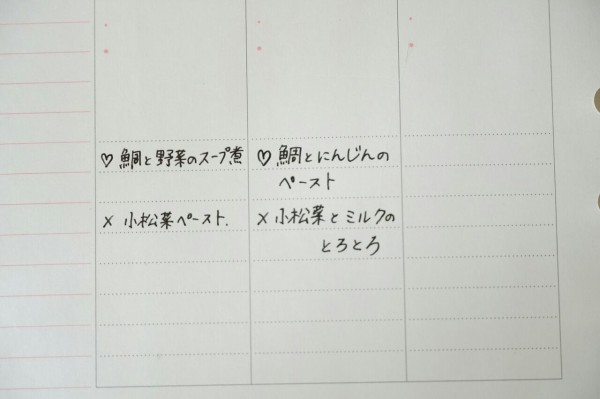 ♡ 鯛と野菜のスープ煮
× 小松菜ペースト.
♡ 鯛とにんじんの
ペースト
× 小松菜とミルクの
とろとろ